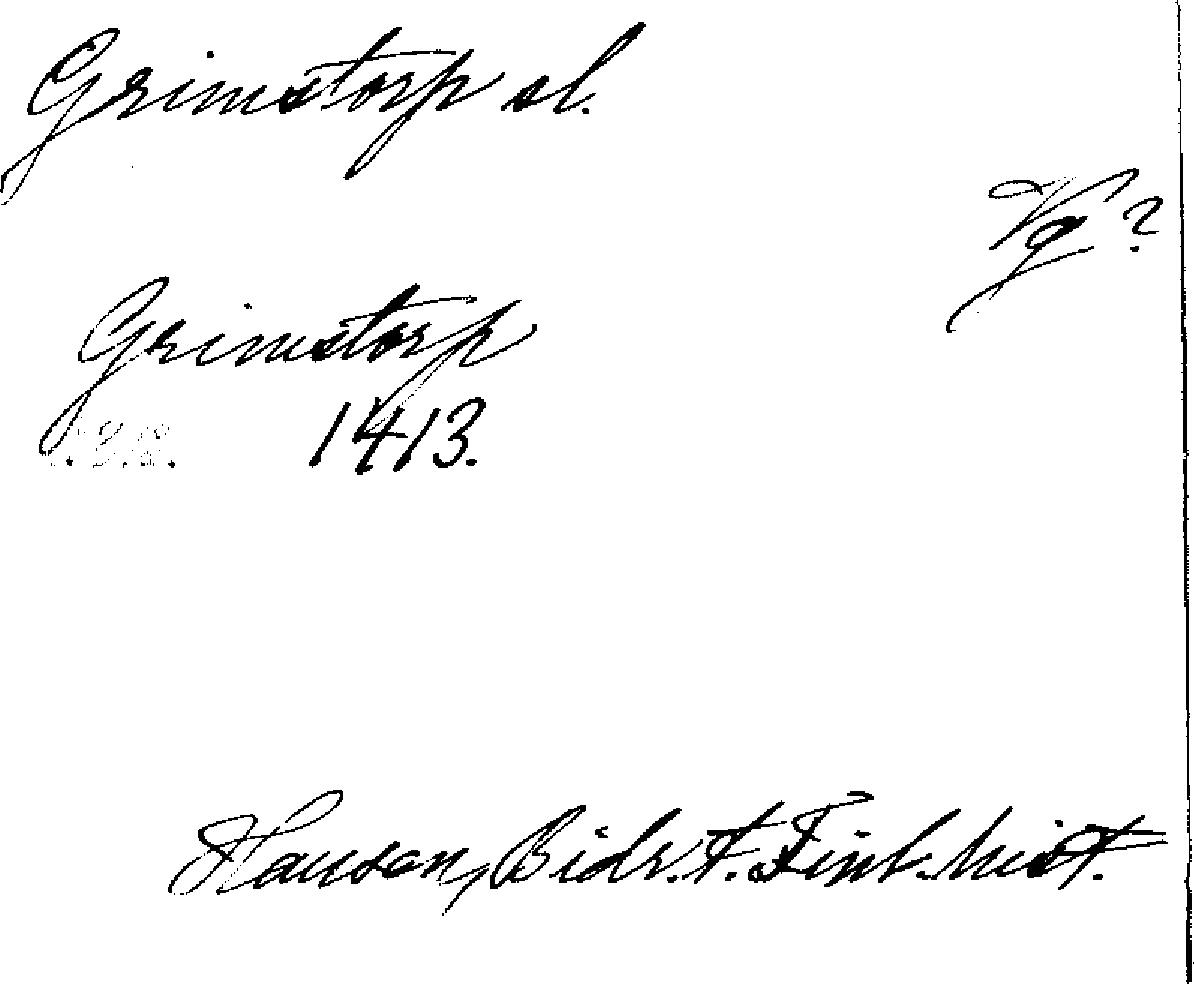 Grimstorp sl.
Vg ?
Grimstorp
1413.
Hausen, Bidr. t. Finl. hist.